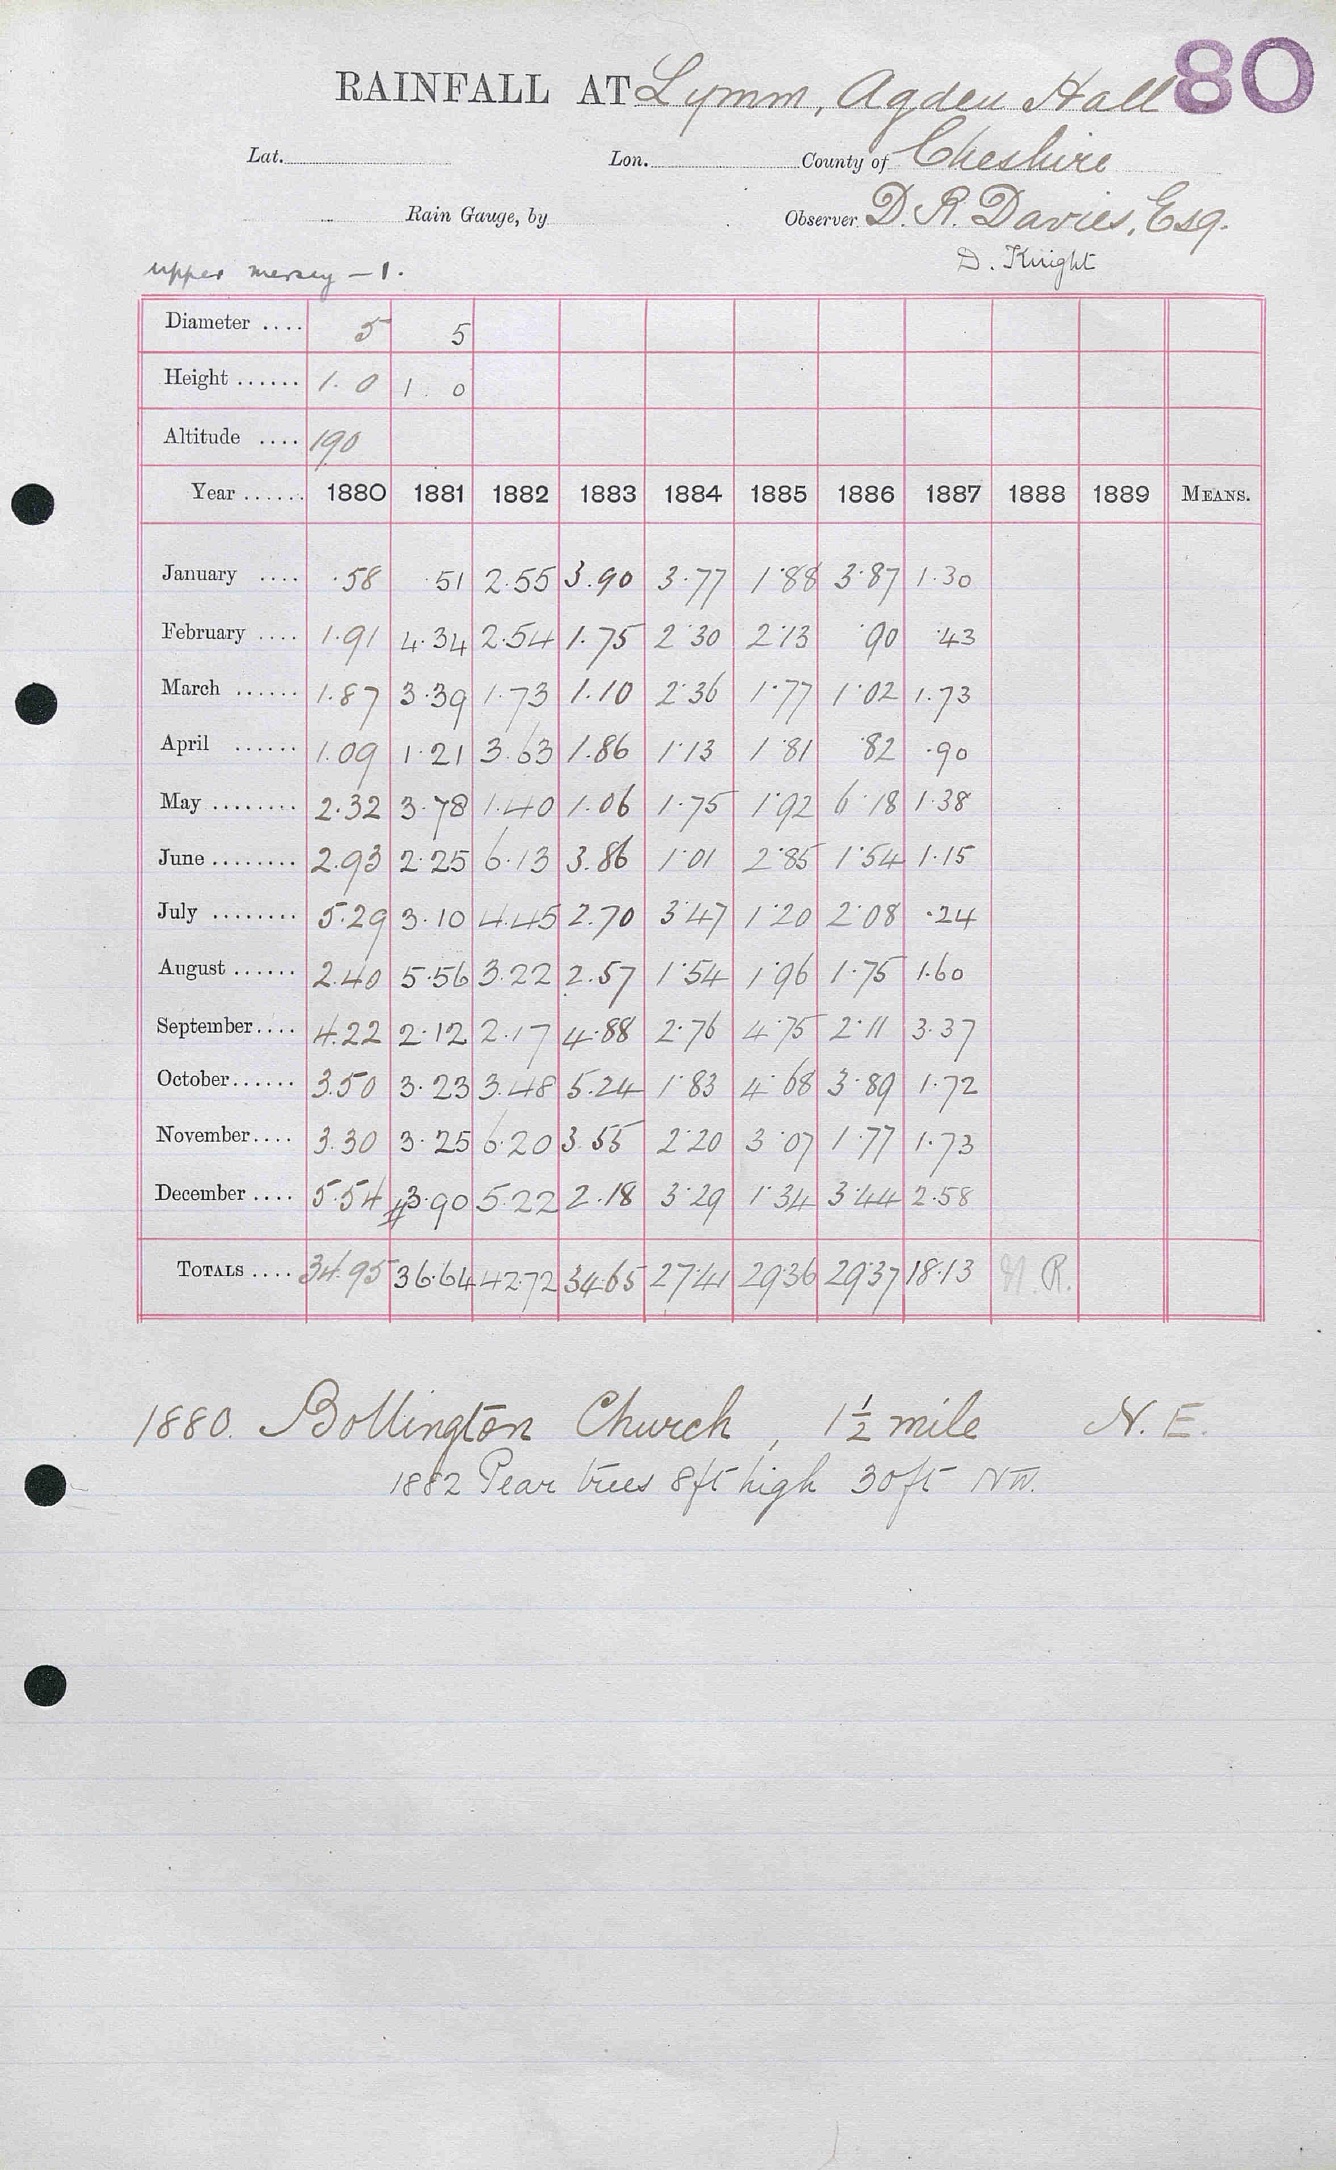 80
RAINFALL AT Lymm, Agden Hall
Lat. Lon. County of Cheshire
Rain Gauge, by Observer D. R. Davies, Esq.
D. Knight
upper mersey - 1.
Diameter .... 5 5
Height ...... 1. 0 1. 0
Altitude .... 190
Year ...... 1880 1881 1882 1883 1884 1885 1886 1887 1888 1889 MEANS.
January .... .58 .51 2.55 3.90 3.77 1.88 3.87 1.30
February .... 1.91 4.34 2.54 1.75 2.30 2.13 .90 .43
March ...... 1.87 3.39 1.73 1.10 2.36 1.77 1.02 1.73
April ...... 1.09 1.21 3.63 1.86 1.13 1.81 .82 .90
May ........ 2.32 3.78 1.40 1.06 1.75 1.92 6.18 1.38
June ........ 2.93 2.25 6.13 3.86 1.01 2.85 1.54 1.15
July ........ 5.29 3.10 4.45 2.70 3.47 1.20 2.08 .24
August ...... 2.40 5.56 3.22 2.57 1.54 1.96 1.75 1.60
September .... 4.22 2.12 2.17 4.88 2.76 4.75 2.11 3.37
October ...... 3.50 3.23 3.48 5.24 1.83 4.68 3.89 1.72
November .... 3.30 3.25 6.20 3.55 2.20 3.07 1.77 1.73
December .... 5.54 3.90 5.22 2.18 3.29 1.34 3.44 2.58
TOTALS .... 34.95 36.64 42.72 34.65 27.41 29.36 29.37 18.13 N.R.
1880. Bollington Church, 1½ mile N. E.
1882 Pear trees 8ft high 30ft NW.